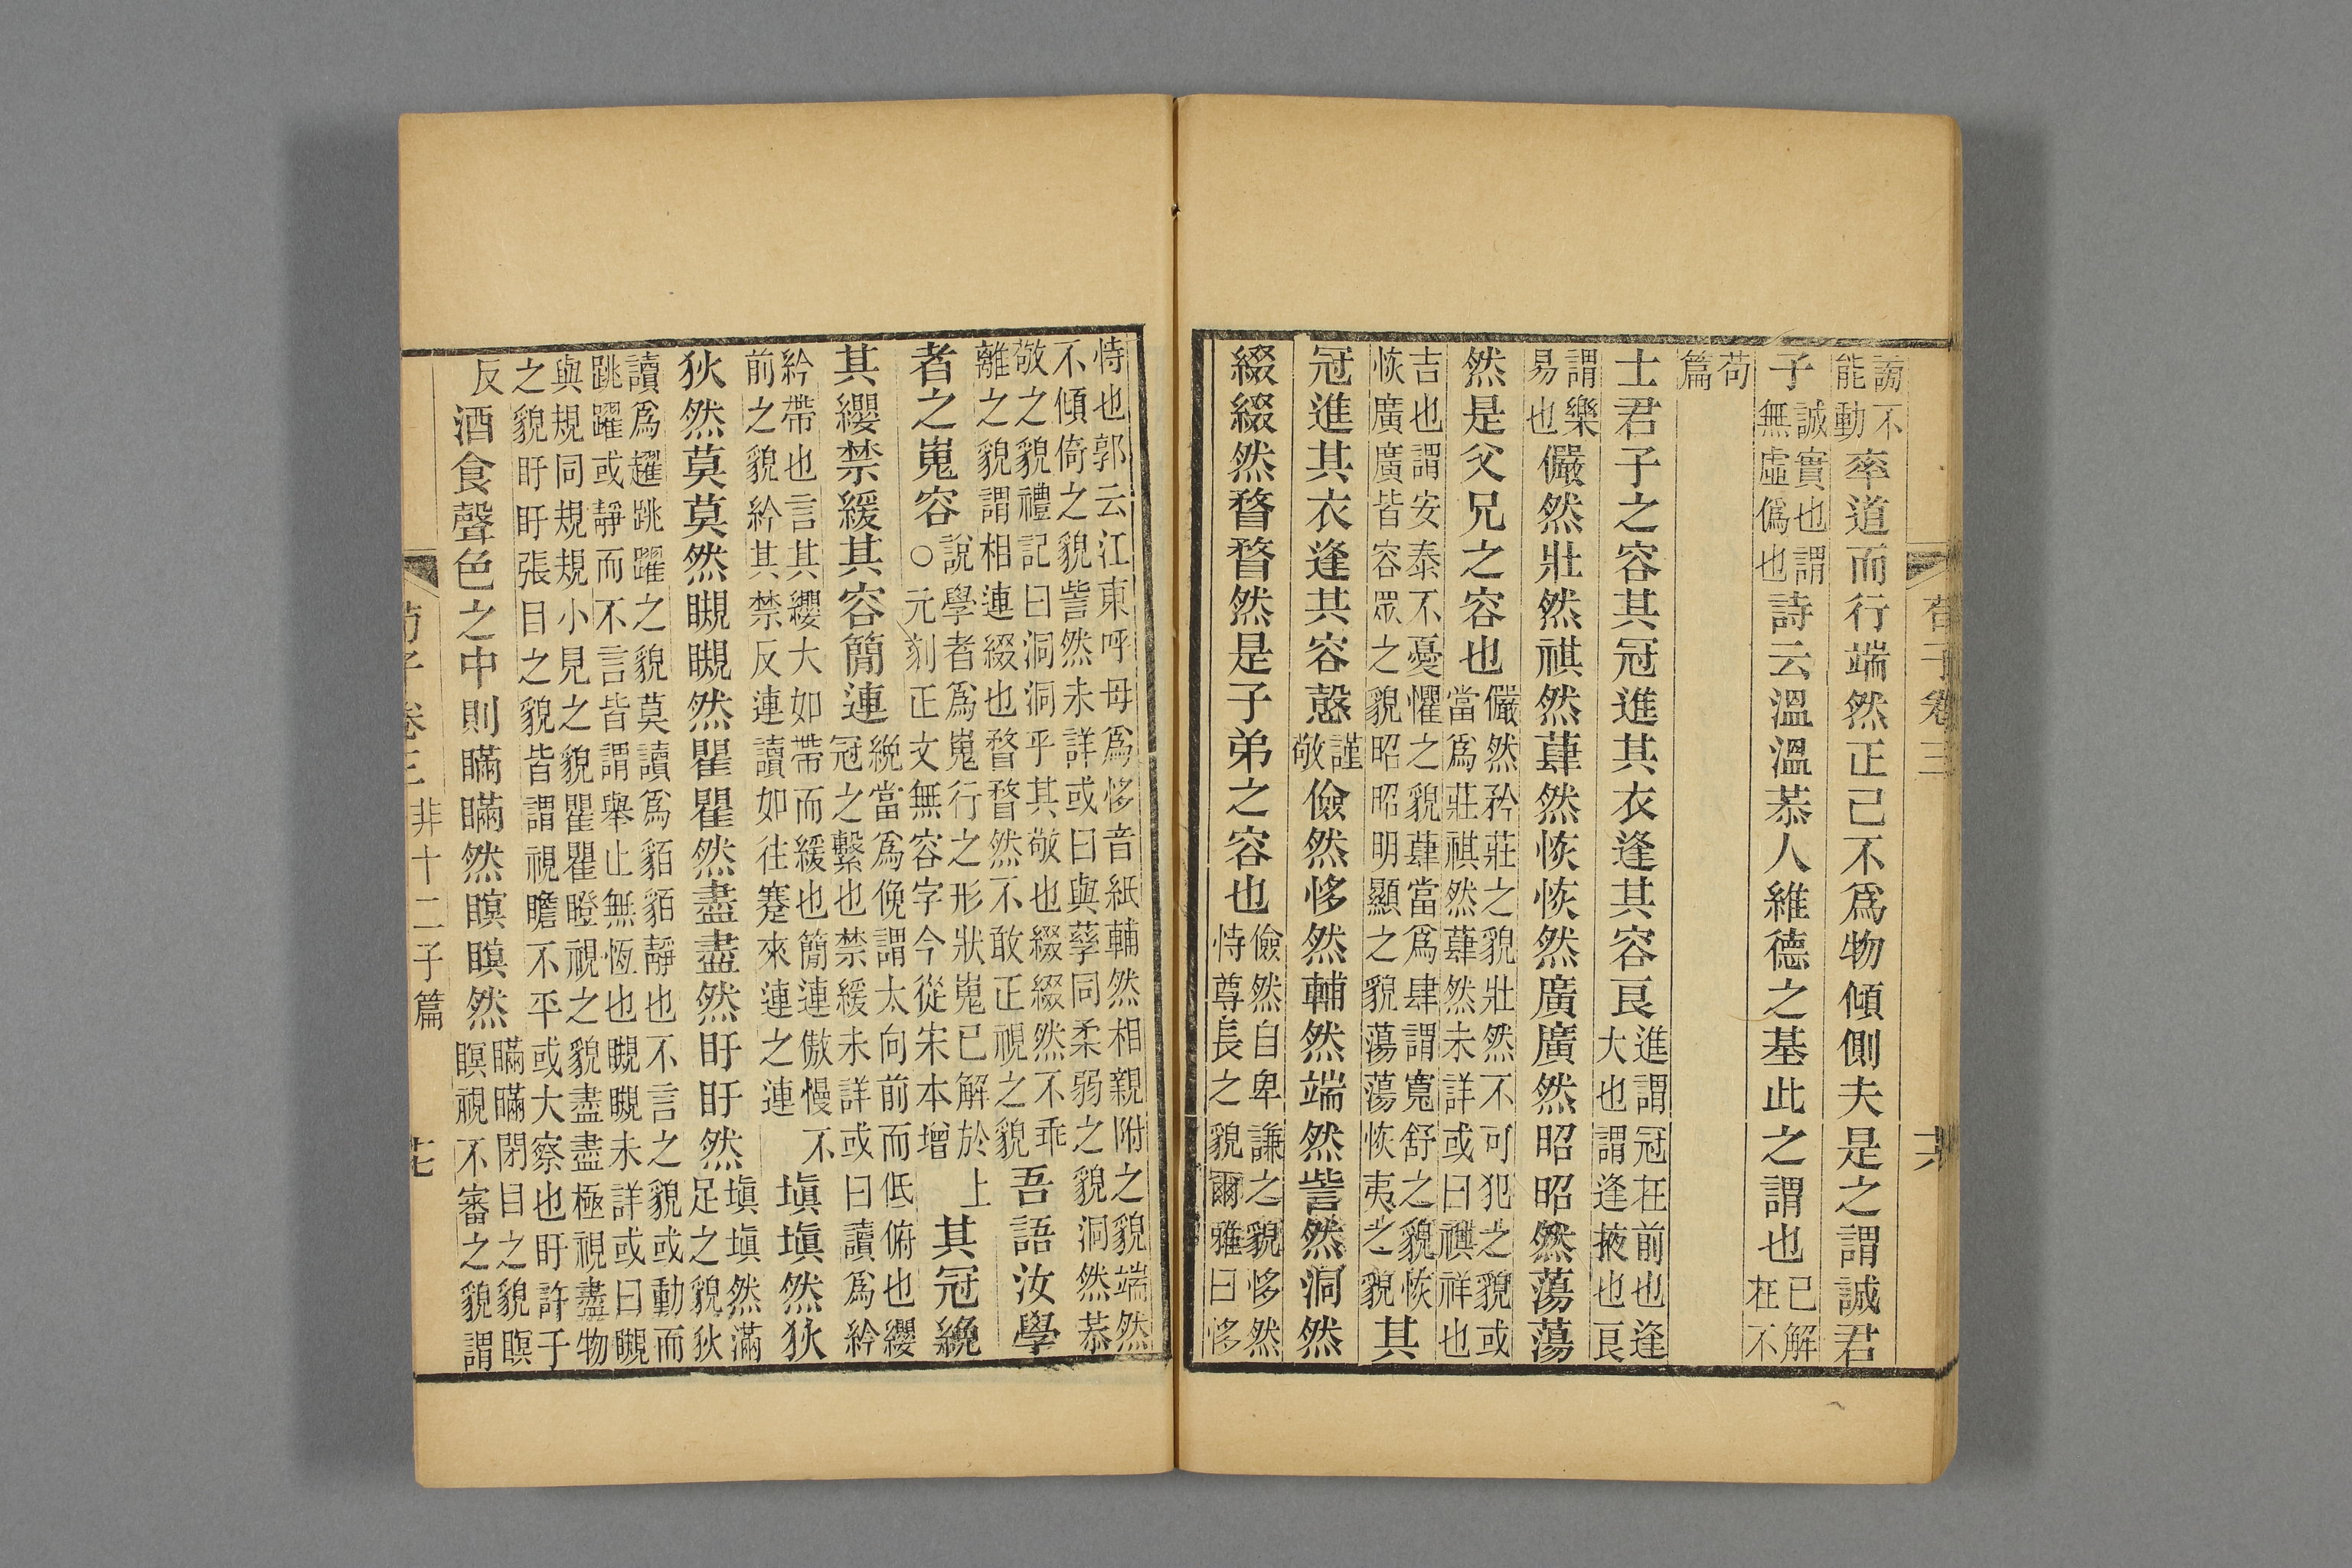 荀子卷三　十六
謗不能動率道而行端然正己不爲物傾側夫是之謂誠君
子誠實也謂無虛僞也詩云溫溫恭人維德之基此之謂也已解在不
苟篇
士君子之容其冠進其衣逢其容良進謂冠在前也逢大也謂逢掖也良
謂樂易也儼然壯然祺然蕼然恢恢然廣廣然昭昭然蕩蕩
然是父兄之容也儼然矜莊之貌壯然不可犯之貌或當爲莊祺然蕼然未詳或曰祺祥也
吉也謂安泰不憂懼之貌蕼當爲肆謂寬舒之貌恢恢廣廣皆容眾之貌昭昭明顯之貌蕩蕩恢夷之貌其
冠進其衣逢其容愨謹敬儉然恀然輔然端然訾然洞然
綴綴然瞀瞀然是子弟之容也儉然自卑謙之貌恀然恃尊長之貌爾雅曰恀
恃也郭云江東呼母爲恀音紙輔然相親附之貌端然不傾倚之貌訾然未詳或曰與孳同柔弱之貌洞然恭
敬之貌禮記曰洞洞乎其敬也綴綴然不乖離之貌謂相連綴也瞀瞀然不敢正視之貌吾語汝學
者之嵬容說學者爲嵬行之形狀嵬已解於上○元刻正文無容字今從宋本增其冠絻
其纓禁緩其容簡連絻當爲俛謂太向前而低俯也纓冠之繫也禁緩未詳或曰讀爲紟
紟帶也言其纓大如帶而緩也簡連傲慢不前之貌紟其禁反連讀如往蹇來連之連塡塡然狄
狄然莫莫然瞡瞡然瞿瞿然盡盡然盱盱然塡塡然滿足之貌狄狄
讀爲趯跳躍之貌莫讀爲貊貊靜也不言之貌或動而跳躍或靜而不言皆謂舉止無恆也瞡瞡未詳或曰瞡
與規同規規小見之貌瞿瞿瞪視之貌盡盡極視盡物之貌盱盱張目之貌皆謂視瞻不平或大察也盱許于
反酒食聲色之中則瞞瞞然瞑瞑然瞞瞞閉目之貌瞑瞑視不審之貌謂
荀子卷三　非十二子篇　十七